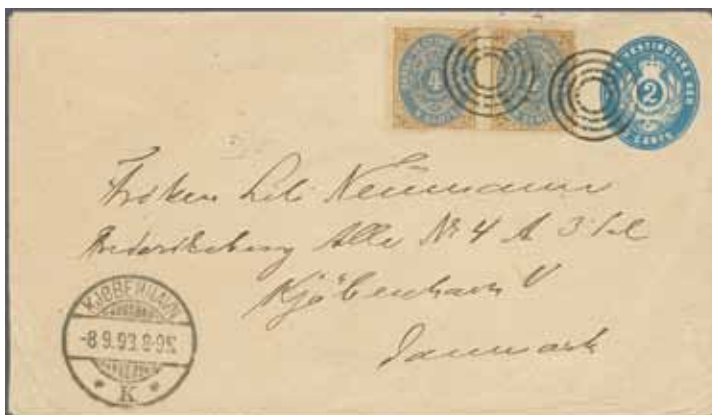 4
2
CENTS
Frøken Lili Neumann
Frederiksberg Alle Nr 4 A 3 Sal
Kjøbenhavn V
Danmark
KJØBENHAVN
-8.9.93.8-9
K